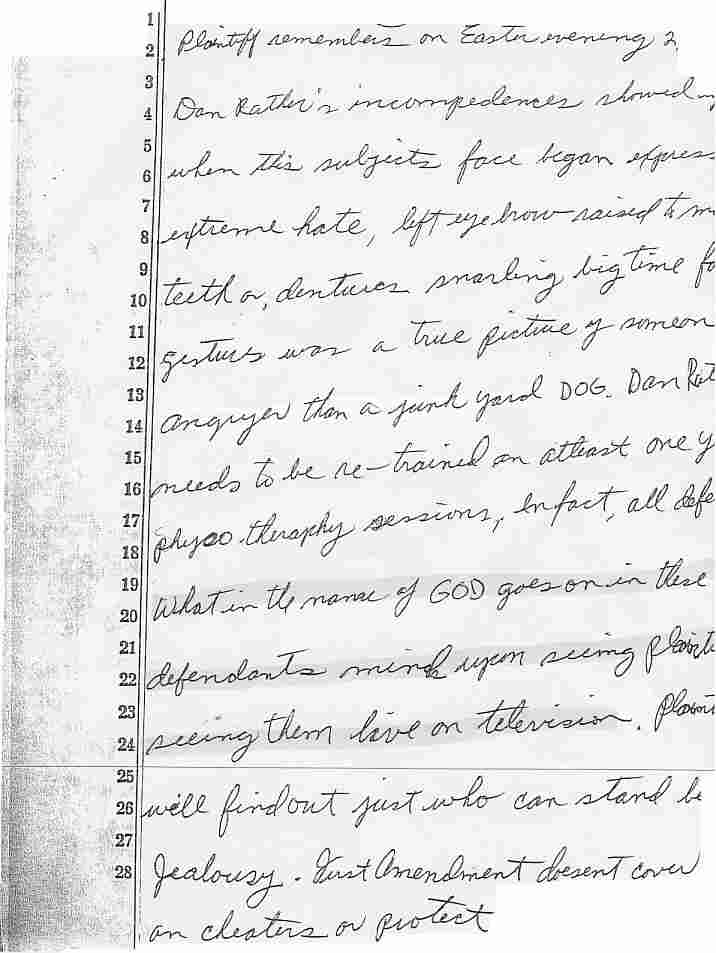 1
2 Plaintiff remembers on Easter evening 2
3
4 Dan Rather's incompedences showed
5
6 when this subjects face began express
7
8 extreme hate, left eyebrow raised to m
9
10 teeth or, dentures snarling big time fo
11
12 gestures was a true picture of someon
13
14 angryer than a junk yard DOG. Dan Rat
15
16 needs to be re-trained on atleast one y
17
18 phyco theraphy sessions, Infact, all defe
19
20 What in the name of GOD goes on in these
21
22 defendants minds upon seeing plainti
23
24 seeing them live on television. Plaint
25
26 will findout just who can stand be
27
28 Jealousy. First Amendment doesent cover
an cheaters or protect